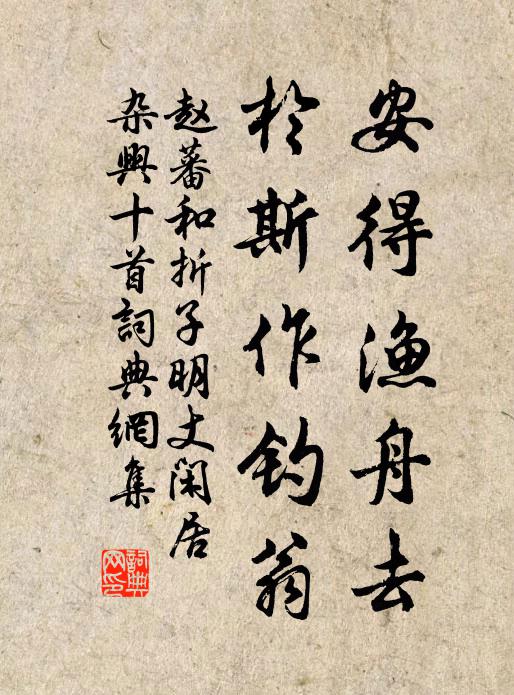 安得渔舟去
於斯作钓翁
赵蕃和折子明丈闲居
杂興十首詞典網集
詞典
网印